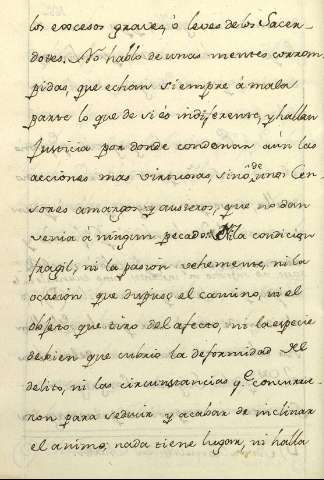 los excesos graves, ó leves de los Sacer-
dotes. No hablo de unas mentes corrom-
pidas, que echan siempre á mala
parte lo que de si és indiferente, y hallan
Justicia por donde condenar aún las
acciones mas virtuosas, sinó de unos Cen-
sores amargos y austeros, que no dan
venia á ningun pecado: Ni la condicion
fragil, ni la pasión vehemente, ni la
ocasión que dispuso el camino, ni el
objeto que tiro del afecto, ni la especie
de bien que cubrio la deformidad del
delito, ni las circunstancias qe. concurrie-
ron para seducir y acabar de inclinar
el animo; nada tiene lugar, ni halla